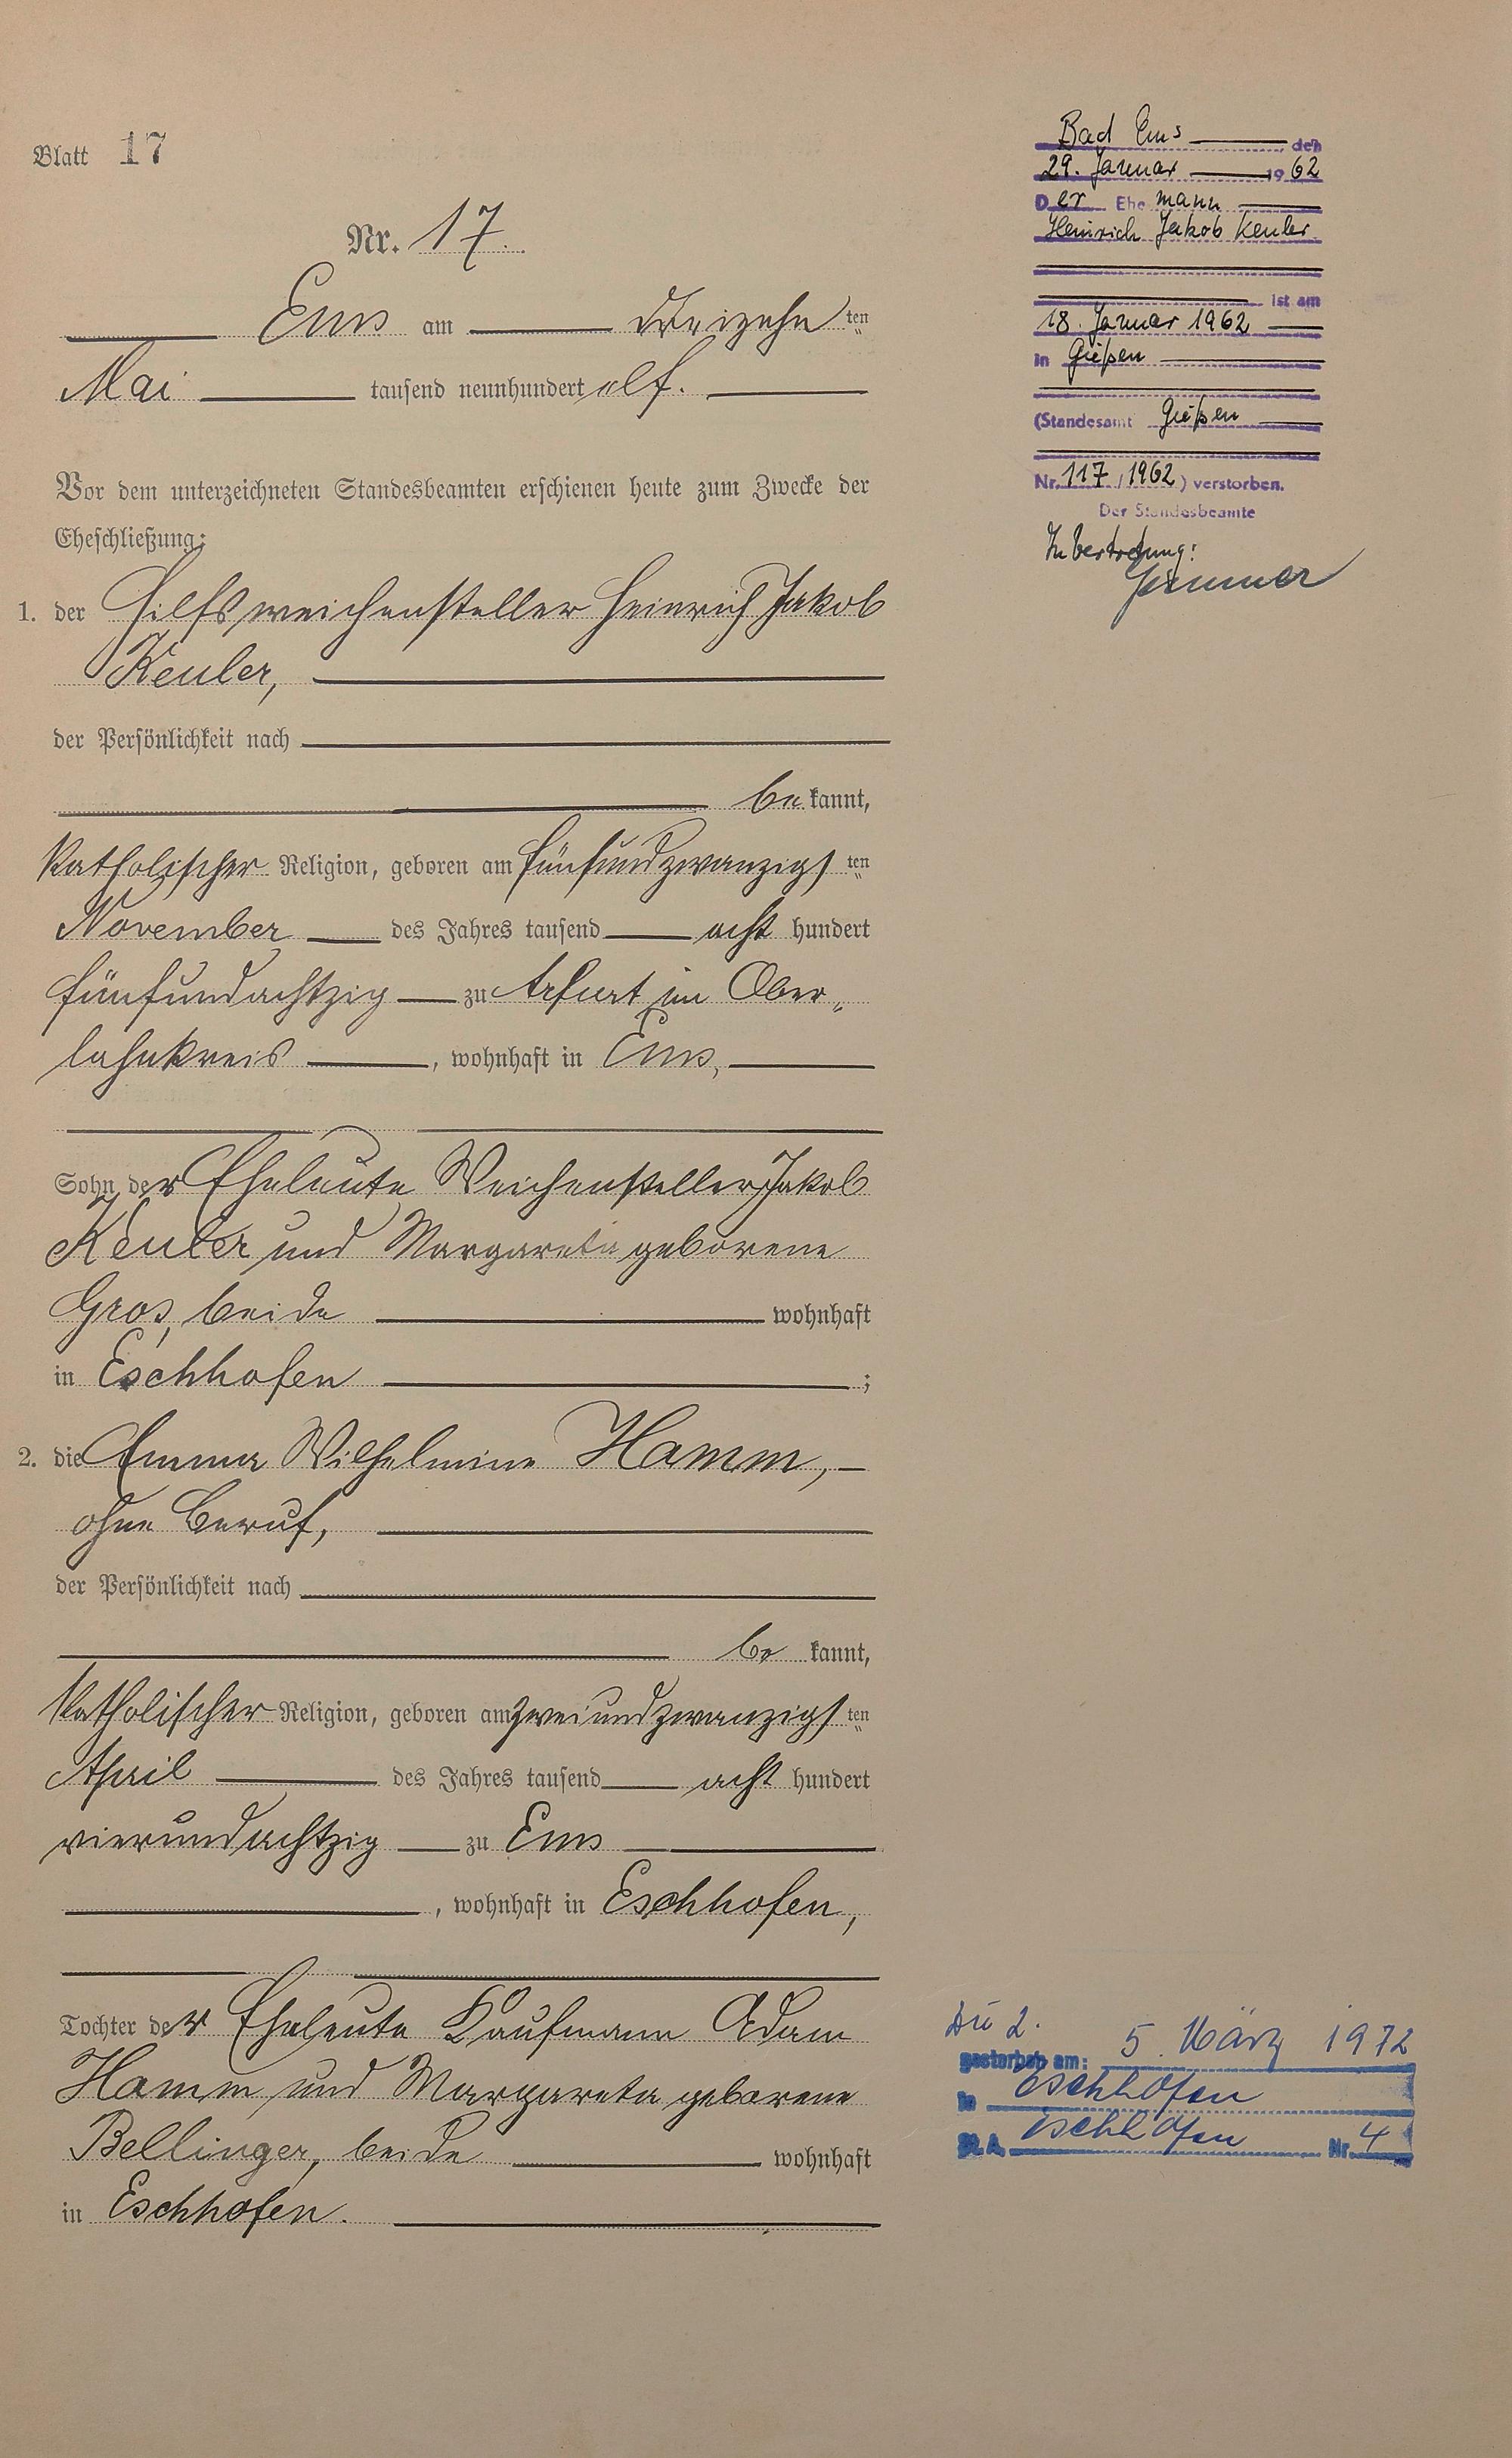 Blatt 17
Nr. 17.
Ems am dreizehn ten
Mai tausend neunhundert elf.
Vor dem unterzeichneten Standesbeamten erschienen heute zum Zwecke der
Eheschließung:
1. der Hilfsweichensteller Heinrich Jakob
Keuler,
der Persönlichkeit nach
be kannt,
katholischer Religion, geboren am fünfundzwanzigs ten
November des Jahres tausend acht hundert
fünfundachtzig zu Arfurt im Ober-
lahnkreis, wohnhaft in Ems,
Sohn der Eheleute Weichensteller Jakob
Keuler und Margareta geborene
Gros, beide wohnhaft
in Eschhofen ;
2. die Emma Wilhelmine Hamm,
ohne Beruf,
der Persönlichkeit nach
be kannt,
katholischer Religion, geboren am zweiundzwanzigs ten
April des Jahres tausend acht hundert
vierundachtzig zu Ems
, wohnhaft in Eschhofen,
Tochter der Eheleute Kaufmann Adam
Hamm und Margareta geborene
Bellinger, beide wohnhaft
in Eschhofen.
Bad Ems, den
29. Januar 19 62
Der Ehe mann
Heinrich Jakob Keuler
ist am
18. Januar 1962
in Gießen
(Standesamt Gießen
Nr. 117 / 1962) verstorben.
Der Standesbeamte
In Vertretung:
Die 2.
gestorben am: 5. März 1972
in Eschhofen
St. A. Eschhofen Nr. 4